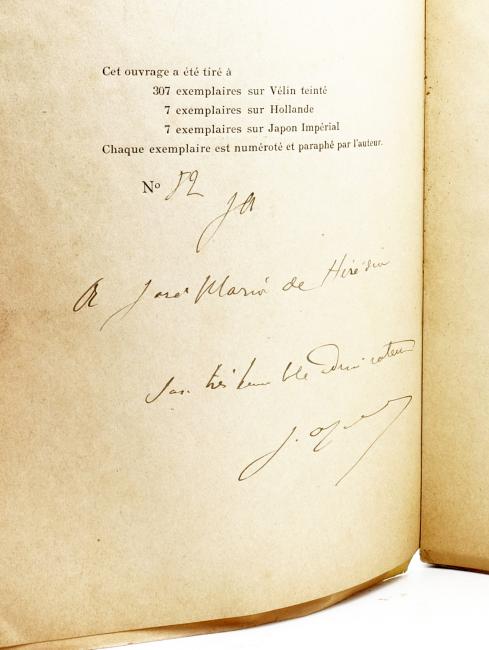 Cet ouvrage a été tiré à
307 exemplaires sur Vélin teinté
7 exemplaires sur Hollande
7 exemplaires sur Japon Impérial
Chaque exemplaire est numéroté et paraphé par l'auteur.
No 52
A José Maria de Hérédia
Son très humble admirateur
J.